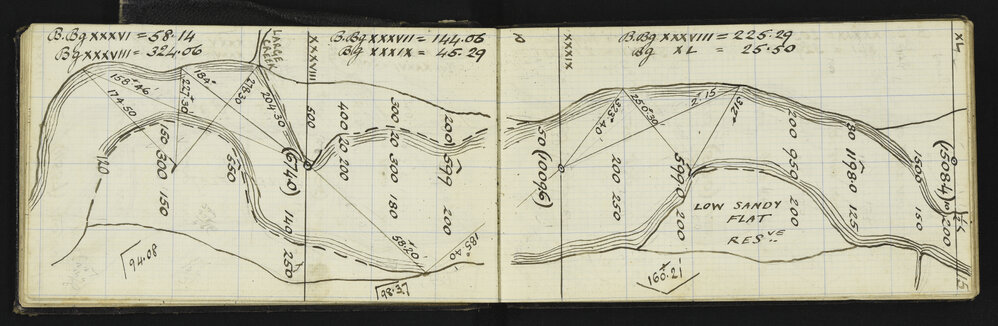 B.Bg XXXVI = 58·14
Bg XXXVIII = 324·06
LARGE CREEK
XXXVIII
B.Bg XXXVII = 144·06
Bg XXXIX = 45·29
158° 46'
184°
174·50
227·30
204·30
500
400
300
200
150
300
150
550
120
(6740)
20
200
20
300
180
599
200
110
250
58° 20'
185° 40'
94·08
98·37
XXXIX
B.Bg XXXVIII = 225·29
Bg XL = 25·50
XL
323° 40'
250° 30'
2° 15
312°
50
(10096)
200
250
5990
200
200
950
200
80
1198·0
125
1500
150
(15084)
200
LOW SANDY
FLAT
RESVE
160·21